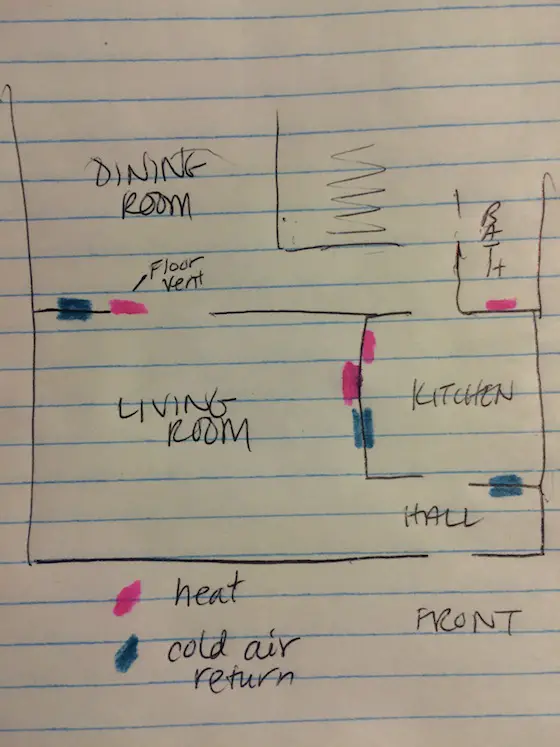 DINING
ROOM
BATH
Floor
vent
LIVING
ROOM
KITCHEN
HALL
heat
cold air
return
FRONT